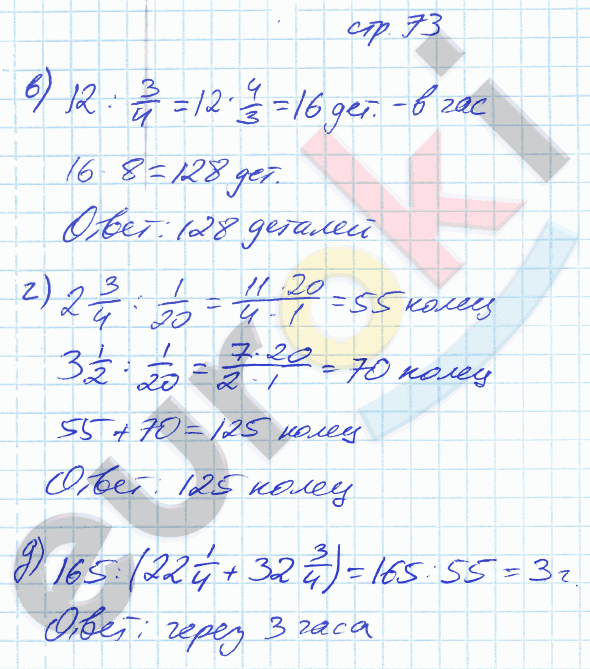 стр. 73
в) 12 : 3/4 = 12 · 4/3 = 16 дет. – в час
16 · 8 = 128 дет.
Ответ: 128 деталей
г) 2 3/4 : 1/20 = 11 · 20 / 4 · 1 = 55 колец
3 1/2 : 1/20 = 7 · 20 / 2 · 1 = 70 колец
55 + 70 = 125 колец
Ответ: 125 колец
д) 165 : (22 1/4 + 32 3/4) = 165 : 55 = 3 г.
Ответ: через 3 часа
euroki